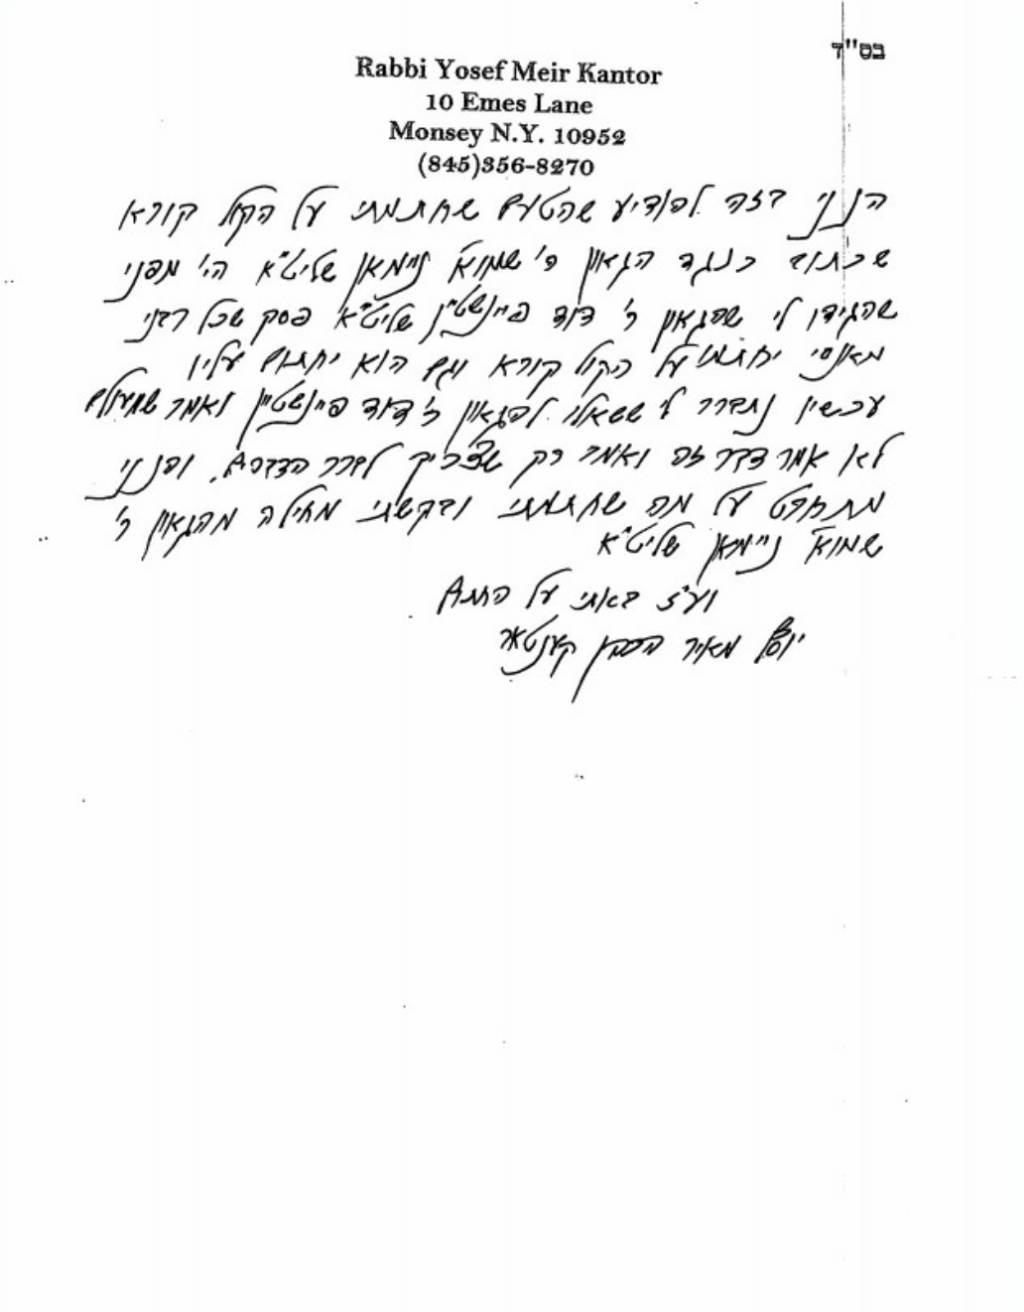 בס"ד
Rabbi Yosef Meir Kantor
10 Emes Lane
Monsey N.Y. 10952
(845)356-8270
הנני בזה להודיע שהטעם שחתמתי על הקול קורא
שכתוב כנגד הגאון ר' שמואל ניימאן שליט"א הי' מפני
שהגידו לי שהגאון ר' דוד פיינשטיין שליט"א פסק שכל רבני
מאנסי יחתמו על הקול קורא וגם הוא יחתום עליו
עכשיו נתברר לי ששאלו להגאון ר' דוד פיינשטיין ואמר שמעולם
לא אמר דבר זה ואמר רק שצריך לברר הדברים. והנני
מתחרט על מה שחתמתי ובקשתי מחילה מהגאון ר'
שמואל ניימאן שליט"א
וע"ז באתי על החתום
יוסף מאיר הכהן קאנטאר